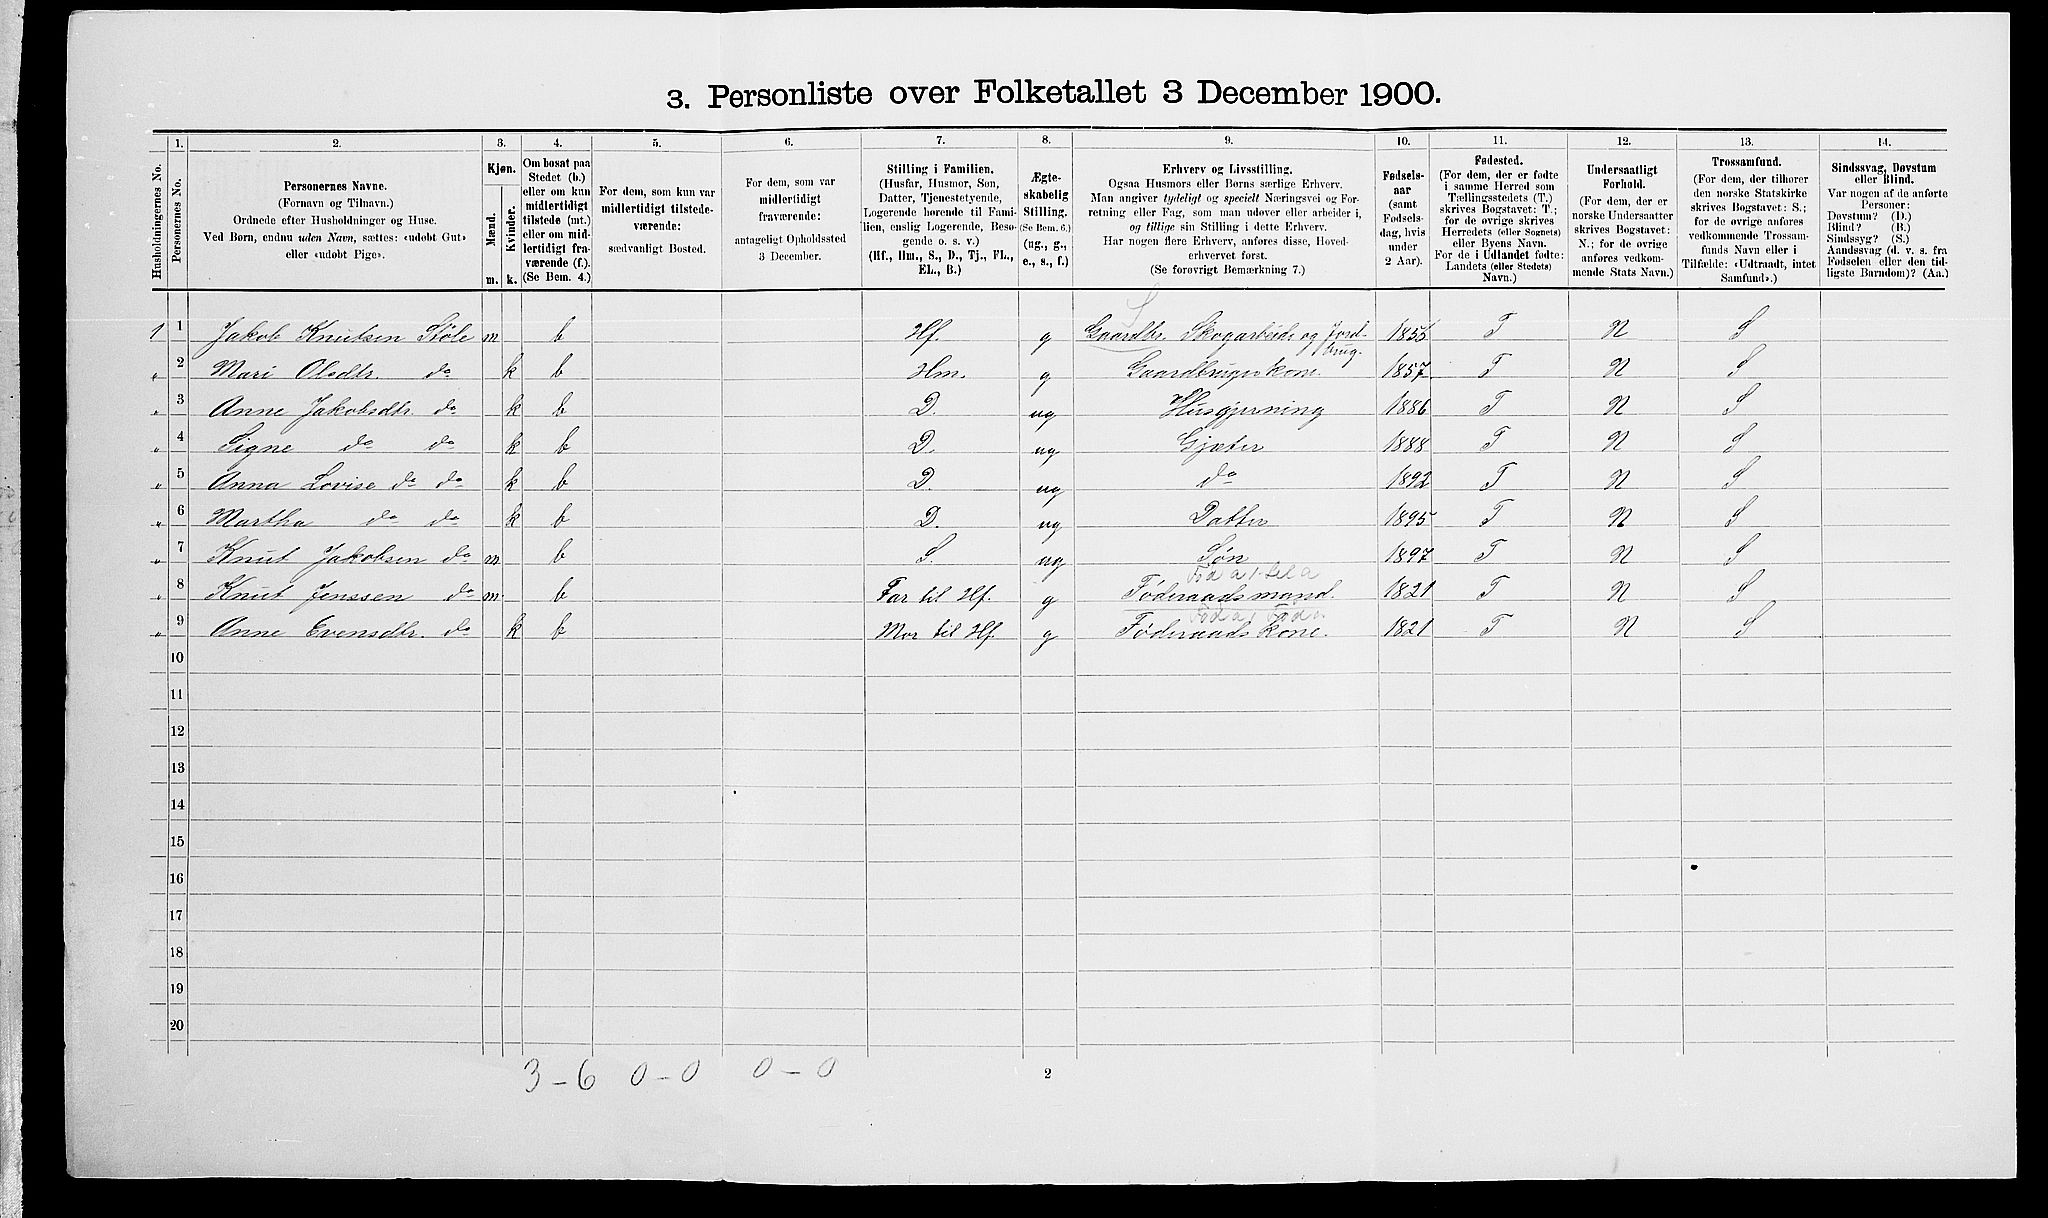 3. Personliste over Folketallet 3 December 1900.
1. 2. 3. 4. 5. 6. 7. 8. 9. 10. 11. 12. 13. 14.
Husholdningernes No.
Personernes No.
Personernes Navne.
(Fornavn og Tilnavn.)
Ordnede efter Husholdninger og Huse.
Ved Børn, endnu uden Navn, sættes: «udøbt Gut»
eller «udøbt Pige».
Kjøn.
Mænd. Kvinder.
m. k.
Om bosat paa
Stedet (b.)
eller om kun
midlertidigt
tilstede (mt.)
eller om mid-
lertidigt fra-
værende (f.)
(Se Bem. 4.)
For dem, som kun var
midlertidigt tilstede-
værende:
sædvanligt Bosted.
For dem, som var
midlertidigt
fraværende:
antageligt Opholdssted
3 December.
Stilling i Familien.
(Husfar, Husmor, Søn,
Datter, Tjenestetyende,
Logerende hørende til Fami-
lien, enslig Logerende, Besø-
gende o. s. v.)
(Hf., Hm., S., D., Tj., FL.,
EL., B.)
Ægte-
skabelig
Stilling.
(Se Bem. 6.)
(ug., g.,
e., s., f.)
Erhverv og Livsstilling.
Ogsaa Husmors eller Børns særlige Erhverv.
Man angiver tydeligt og specielt Næringsvei og For-
retning eller Fag, som man udøver eller arbeider i,
og tillige sin Stilling i dette Erhverv.
Har nogen flere Erhverv, anføres disse, Hoved-
erhvervet først.
(Se forøvrigt Bemærkning 7.)
Fødsels-
aar
(samt
Fødsels-
dag, hvis
under
2 Aar).
Fødested.
(For dem, der er fødte
i samme Herred som
Tællingsstedets (T.)
skrives Bogstavet: T.;
for de øvrige skrives
Herredets (eller Sognets)
eller Byens Navn.
For de i Udlandet fødte:
Landets (eller Stedets)
Navn.)
Undersaatligt
Forhold.
(For dem, der er
norske Undersaatter
skrives Bogstavet:
N.; for de øvrige
anføres vedkom-
mende Stats Navn.)
Trossamfund.
(For dem, der tilhører
den norske Statskirke
skrives Bogstavet: S.;
for de øvrige anføres
vedkommende Trossam-
funds Navn eller i
Tilfælde: «Udtraadt, intet
Samfund».)
Sindssvag, Døvstum
eller Blind.
Var nogen af de anførte
Personer:
Døvstum? (D.)
Blind? (B.)
Sindssyg? (S.)
Aandssvag (d. v. s. fra
Fødselen eller den tid-
ligste Barndom)? (Aa.)
1 1 Jakob Knutsen Støle m b Hf. g Gaardbr. Skogarbeide og Jord-
brug. 1855 T N S
" 2 Mari Olsdtr. do k b Hm. g Gaardbruger kone. 1857 T N S
" 3 Anne Jakobsdtr. do k b D. ug Husgjerning 1886 T N S
" 4 Signe do do k b D. ug Gjæter 1888 T N S
" 5 Anna Lovise do do k b D. ug do 1892 T N S
" 6 Martha do do k b D. ug Datter 1895 T N S
" 7 Knut Jakobsen do m b S. ug Søn 1897 T N S
" 8 Knut Jenssen do m. b Far til Hf. g Føderaadsmand. 1821 T N S
" 9 Anne Evensdtr. do k b Mor til Hf. g Føderaads kone. 1821 T N S
10
11
12
13
14
15
16
17
18
19
20
3 - 6 0 - 0 0 - 0
2